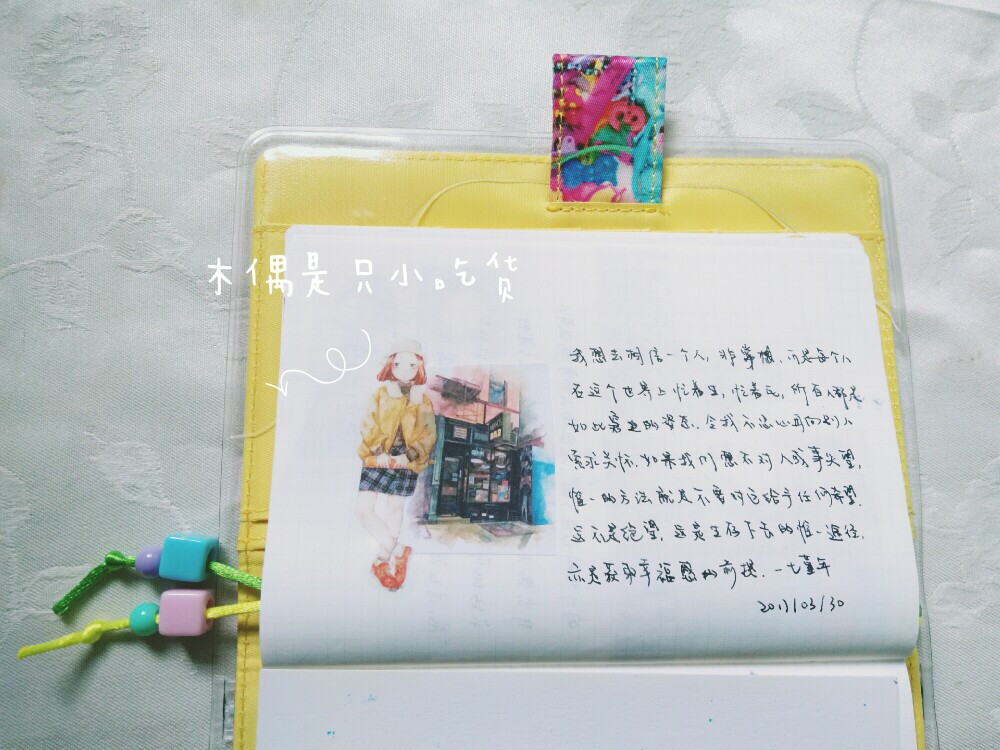 木偶是只小吃货
我想去相信一个人，非常想。可是每个人
在这个世界上忙着生，忙着死，所有人都是
如此窘迫的姿态，令我不忍心再向别人
索求关怀。如果我们想不对人或事失望，
惟一的方法就是不要对它给予任何希望。
这不是绝望，这是生存下去的惟一途径，
亦是获取幸福感的前提。—七堇年
2017/03/30